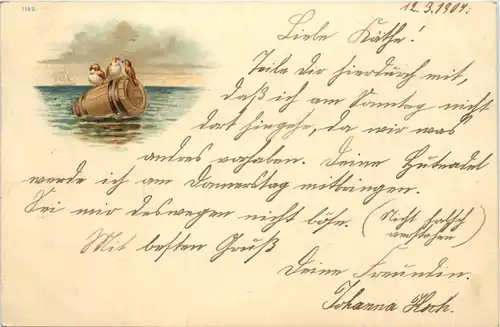 1192.
12.3.1904.
Liebe Käthe!
Teile Dir hierdurch mit,
daß ich am Sonntag nicht
dort hingehe, da wir was
andres vorhaben. Deine Hutnadel
werde ich am Donnerstag mitbringen.
Sei mir deswegen nicht böse. (Nicht falsch
verstehen)
Mit besten Gruß
Deine Freundin.
Johanna